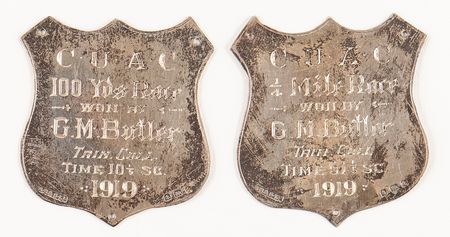 C U A C
100 Yds Race
WON BY
G.M. Butler
TRIN. COLL.
TIME 10⅕ SC.
1919
C U A C
¼ Mile Race
WON BY
G.M. Butler
TRIN. COLL.
SC.
1919